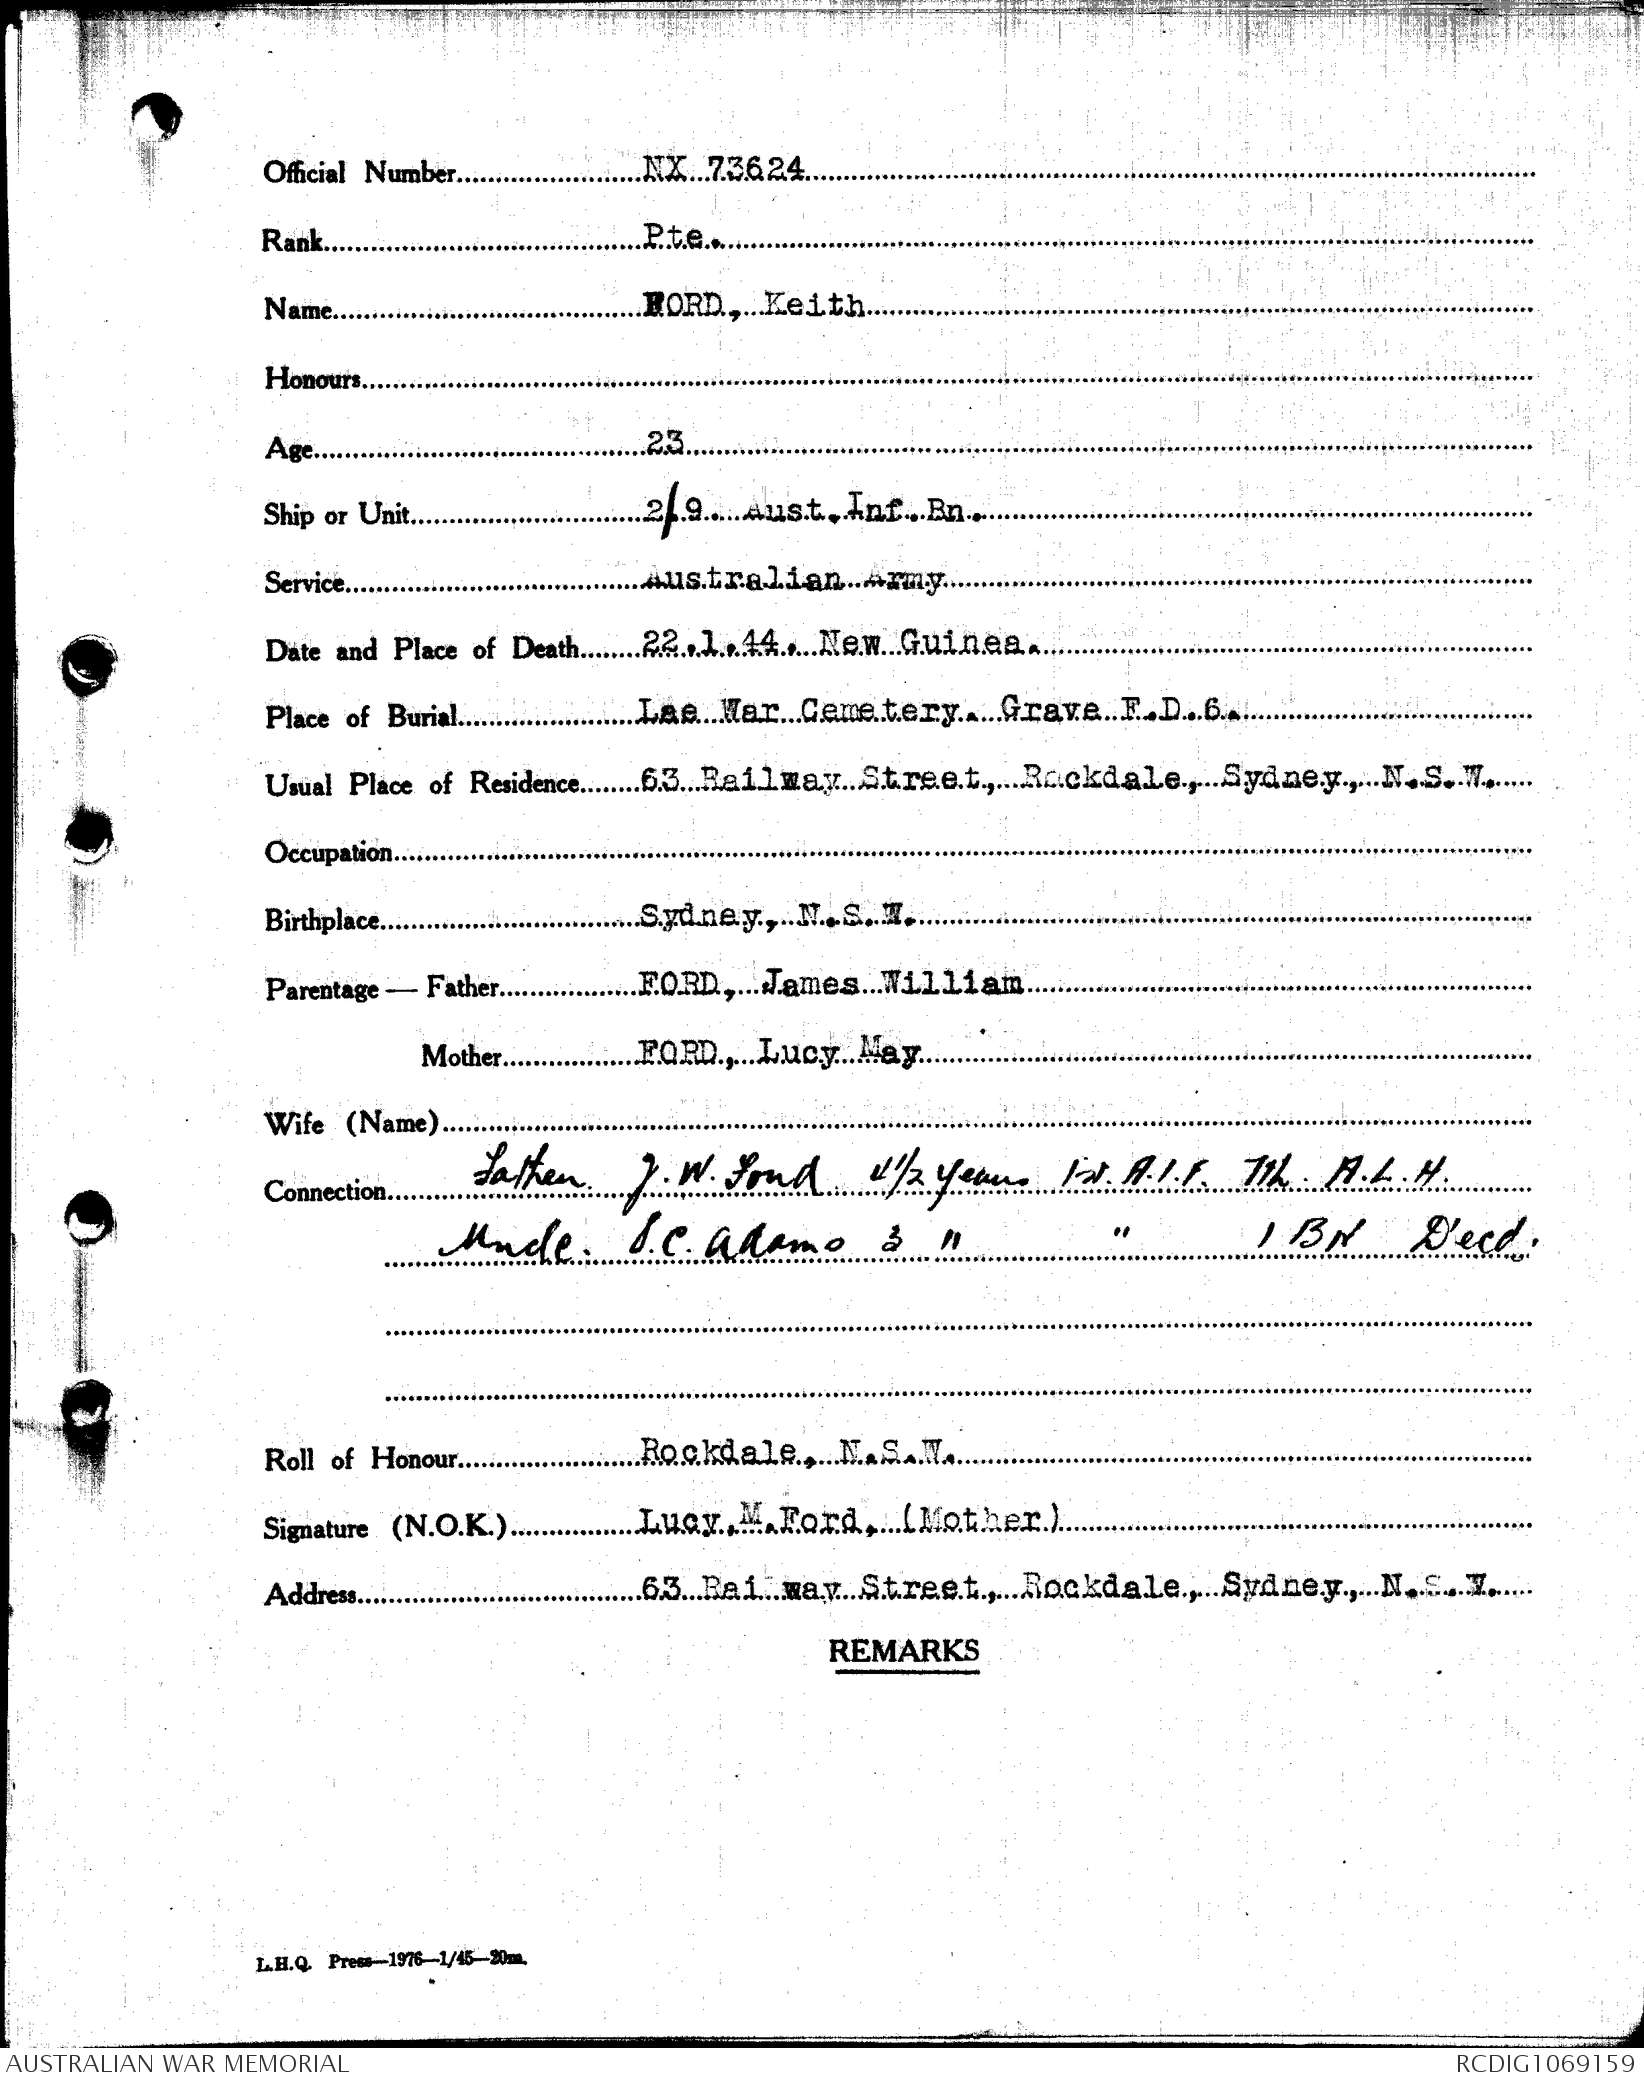 Official Number NX 73624
Rank Pte.
Name FORD, Keith
Honours
Age 23
Ship or Unit 2/9 Aust. Inf. Bn.
Service Australian Army
Date and Place of Death 22.1.44. New Guinea.
Place of Burial Lae War Cemetery. Grave F.D.6.
Usual Place of Residence 63 Railway Street, Rockdale, Sydney, N.S.W.
Occupation
Birthplace Sydney, N.S.W.
Parentage — Father FORD, James William
Mother FORD, Lucy May
Wife (Name)
Connection Father. J. W. Ford 4 1/2 years 1st. A.I.F. 7th. A.L.H.
Uncle. S.C. Adams 3 " " 1 BN Decd.
Roll of Honour Rockdale, N.S.W.
Signature (N.O.K.) Lucy.M.Ford, (Mother)
Address 63 Railway Street, Rockdale, Sydney, N.S.W.
REMARKS
L.H.Q. Press—1976—1/45—20m.
AUSTRALIAN WAR MEMORIAL RCDIG1069159